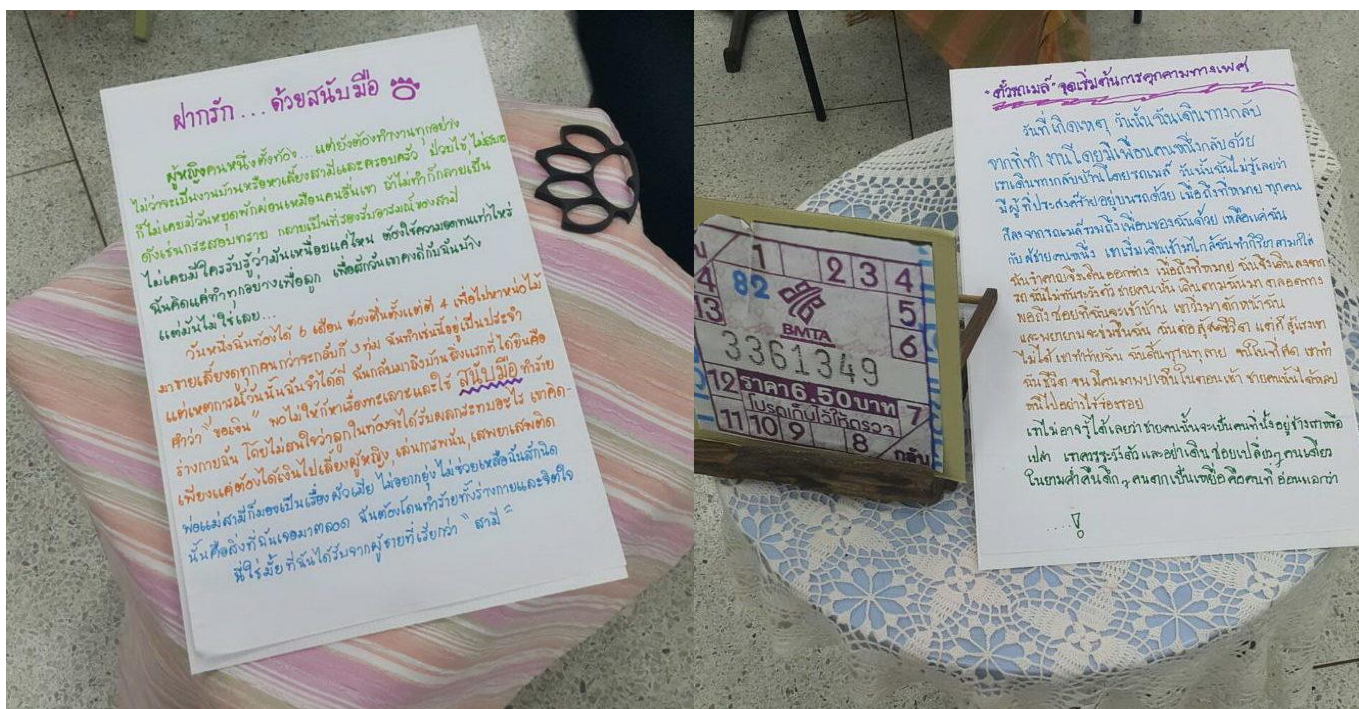 ฝากรัก...ด้วยสนับมือ
ผู้หญิงคนหนึ่งตั้งท้อง...แต่ยังต้องทำงานทุกอย่าง
ไม่ว่าจะเป็นงานบ้านหรือหาเลี้ยงสามีและครอบครัว ป่วยไข้,ไม่สบาย
ก็ไม่เคยมีวันหยุดพักผ่อนเหมือนคนอื่นเขา ถ้าไม่ทำก็กลายเป็น
ดังเช่นกระสอบทราย กลายเป็นที่รองรับอารมณ์ของสามี
ไม่เคยมีใครรับรู้ว่ามันเหนื่อยแค่ไหน ต้องใช้ความอดทนเท่าไหร่
ฉันคิดแค่ทำทุกอย่างเพื่อลูก เพื่อสักวันเขาคงดีกับฉันบ้าง
แต่มันไม่ใช่เลย...
วันหนึ่งฉันท้องได้ 6 เดือน ต้องตื่นตั้งแต่ตี 4 เพื่อไปหาหน่อไม้
มาขายเลี้ยงดูทุกคนกว่าจะกลับก็ 3 ทุ่ม ฉันทำเช่นนี้อยู่เป็นประจำ
แต่เหตุการณ์วันนั้นฉันจำได้ดี ฉันกลับมาถึงบ้านสิ่งแรกที่ได้ยินคือ
คำว่า "ขอเงิน" พอไม่ให้ก็หาเรื่องทะเลาะและใช้ สนับมือ ทำร้าย
ร่างกายฉัน โดยไม่สนใจว่าลูกในท้องจะได้รับผลกระทบอะไร เขาคิด-
เพียงแค่ต้องได้เงินไปเลี้ยงผู้หญิง,เล่นการพนัน,เสพยาเสพติด
พ่อแม่สามีก็มองเป็นเรื่องผัวเมีย ไม่อยากยุ่ง ไม่ช่วยเหลือฉันสักนิด
นั้นคือสิ่งที่ฉันเจอมาตลอด ฉันต้องโดนทำร้ายทั้งร่างกายและจิตใจ
นี่ใช่มั้ย ที่ฉันได้รับจากผู้ชายที่เรียกว่า "สามี"
"ตั๋วรถเมล์" จุดเริ่มต้นการคุกคามทางเพศ
วันที่เกิดเหตุ วันนั้นฉันเดินทางกลับ
จากที่ทำงานโดยมีเพื่อนคนหนึ่งกลับด้วย
เราเดินทางกลับบ้านโดยรถเมล์ วันนั้นฉันไม่รู้เลยว่า
มีผู้ที่ประสงค์ร้ายอยู่บนรถด้วย เมื่อถึงที่หมาย ทุกคน
ก็ลงจากรถเมล์รวมถึงเพื่อนของฉันด้วย เหลือแค่ฉัน
กับผู้ชายคนหนึ่ง เขาเริ่มเดินเข้ามาใกล้ฉันทำกิริยาลามกใส่
ฉันรำคาญจึงเดินออกห่าง เมื่อถึงที่หมาย ฉันจึงเดินลงจาก
รถ ฉันไม่ทันระวังตัว ชายคนนั้น เดินตามฉันมาตลอดทาง
พอถึงซอยที่ฉันจะเข้าบ้าน เขาวิ่งมาดักหน้าฉัน
และพยายามจะข่มขืนฉัน ฉันต่อสู้สุดชีวิต แต่ก็สู้แรงเขา
ไม่ได้ เขาทำร้ายฉัน ฉันดิ้นทุรนทุราย จนในที่สุด เขาฆ่า
ฉันชีวิต จนมีคนมาพบเห็นในตอนเช้า ชายคนนั้นได้หลบ
หนีไปอย่างไร้ร่องรอย
เราไม่อาจรู้ได้เลยว่าชายคนนั้นจะเป็นคนที่นั่งอยู่ข้างเราหรือ
เปล่า เราควรระวังตัว และอย่าเดินซอยเปลี่ยวๆ คนเดียว
ในยามค่ำคืนดึกๆ คนตกเป็นเหยื่อคือคนที่ อ่อนแอกว่า
....!
1 2 3 4
4 82 5
13 BMTA 6
3361349
12 ราคา6.50บาท 7
โปรดเก็บไว้ให้ตรวจ
11 10 9 8 กลับ